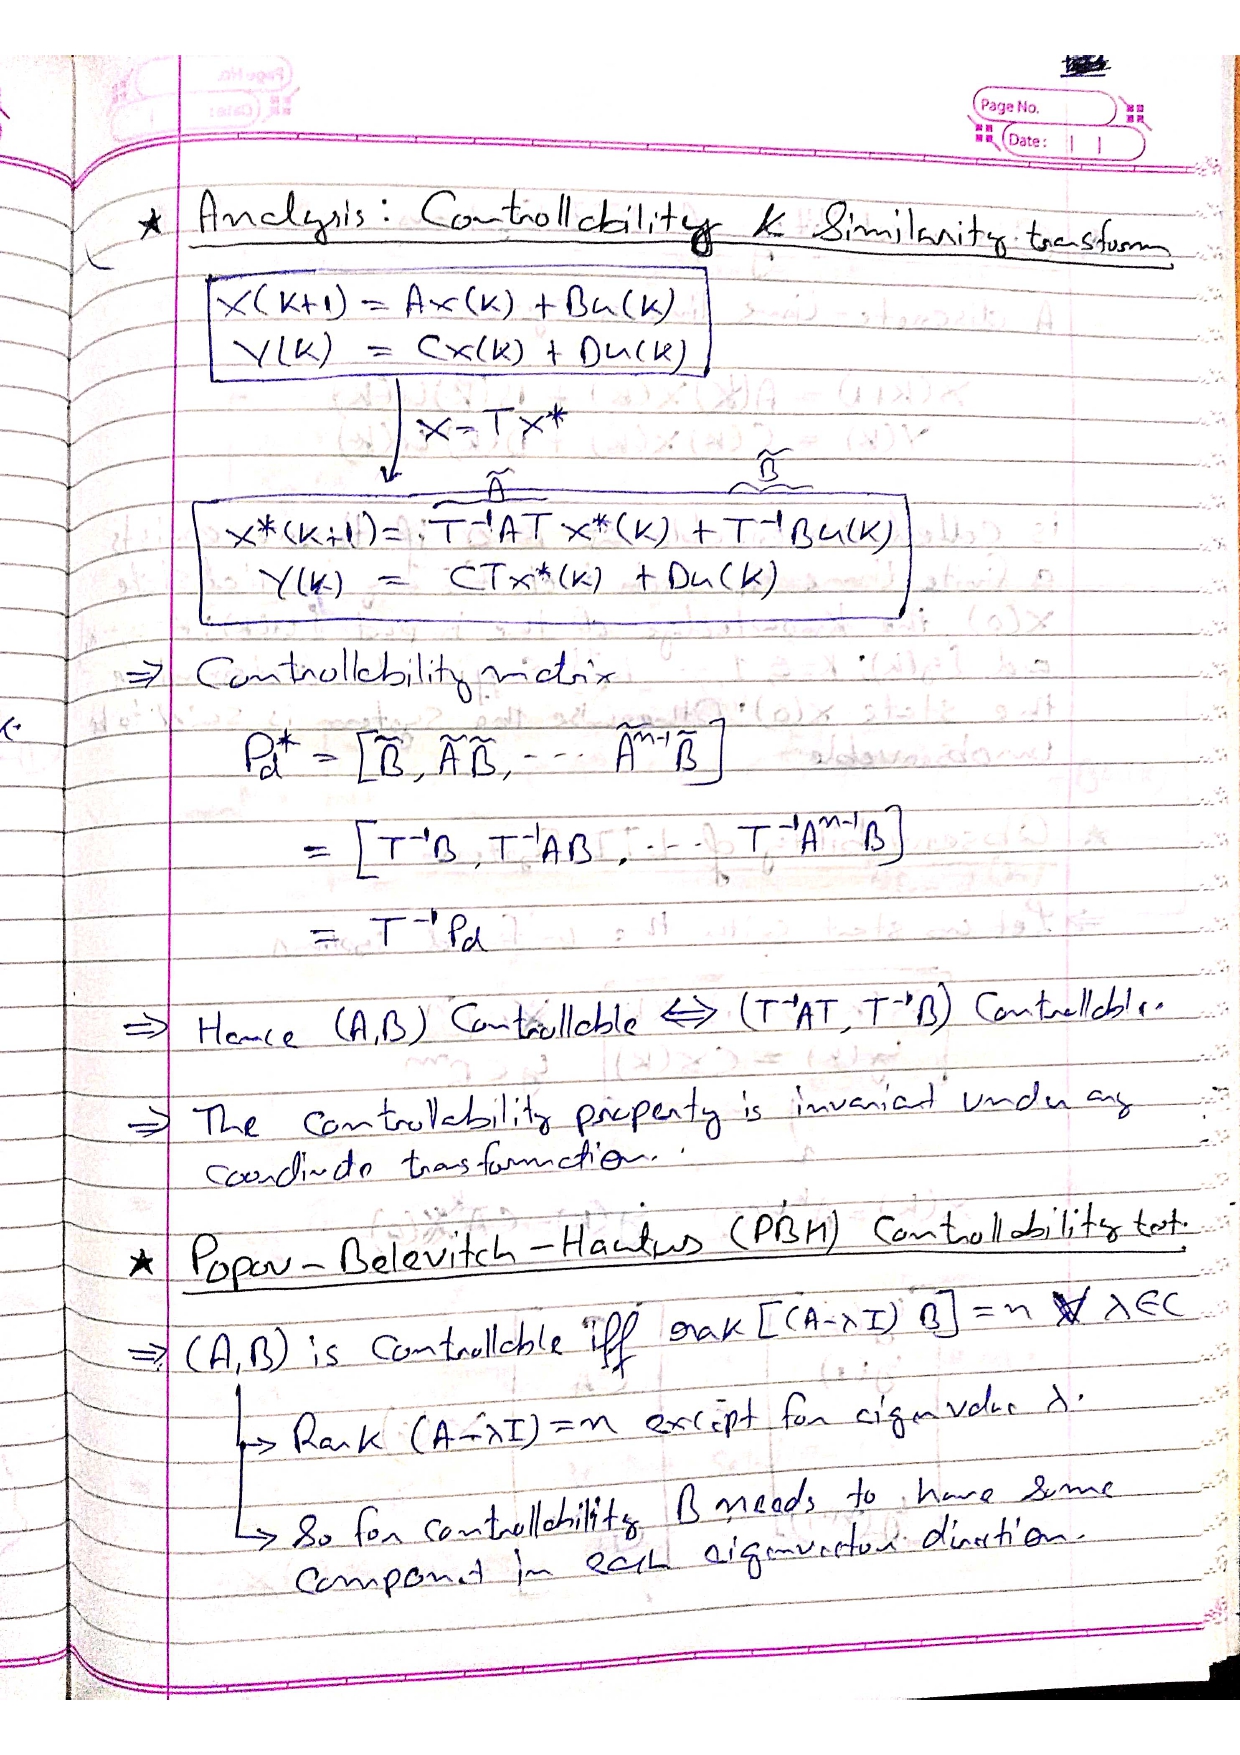 Page No.
Date:
★ Analysis: Controllability & Similarity transform
X(k+1) = Ax(k) + Bu(k)
Y(k) = Cx(k) + Du(k)
X = TX*
Ã B̃
X*(k+1) = T⁻¹AT x*(k) + T⁻¹Bu(k)
Y(k) = CTx*(k) + Du(k)
⇒ Controllability matrix
Pd* = [B̃, ÃB̃, --- Ãⁿ⁻¹B̃]
= [T⁻¹B, T⁻¹AB, --- T⁻¹Aⁿ⁻¹B]
= T⁻¹Pd
⇒ Hence (A,B) Controllable ⇔ (T⁻¹AT, T⁻¹B) Controllable.
⇒ The controllability property is invariant under any
coordinate transformation.
★ Popov-Belevitch-Hautus (PBH) Controllability test.
⇒ (A,B) is Controllable iff rak [(A-λI) B] = n ∀ λ∈C
↳ Rank (A-λI) = n except for eigenvalue λ.
↳ So for controllability B needs to have some
component in each eigenvector direction.